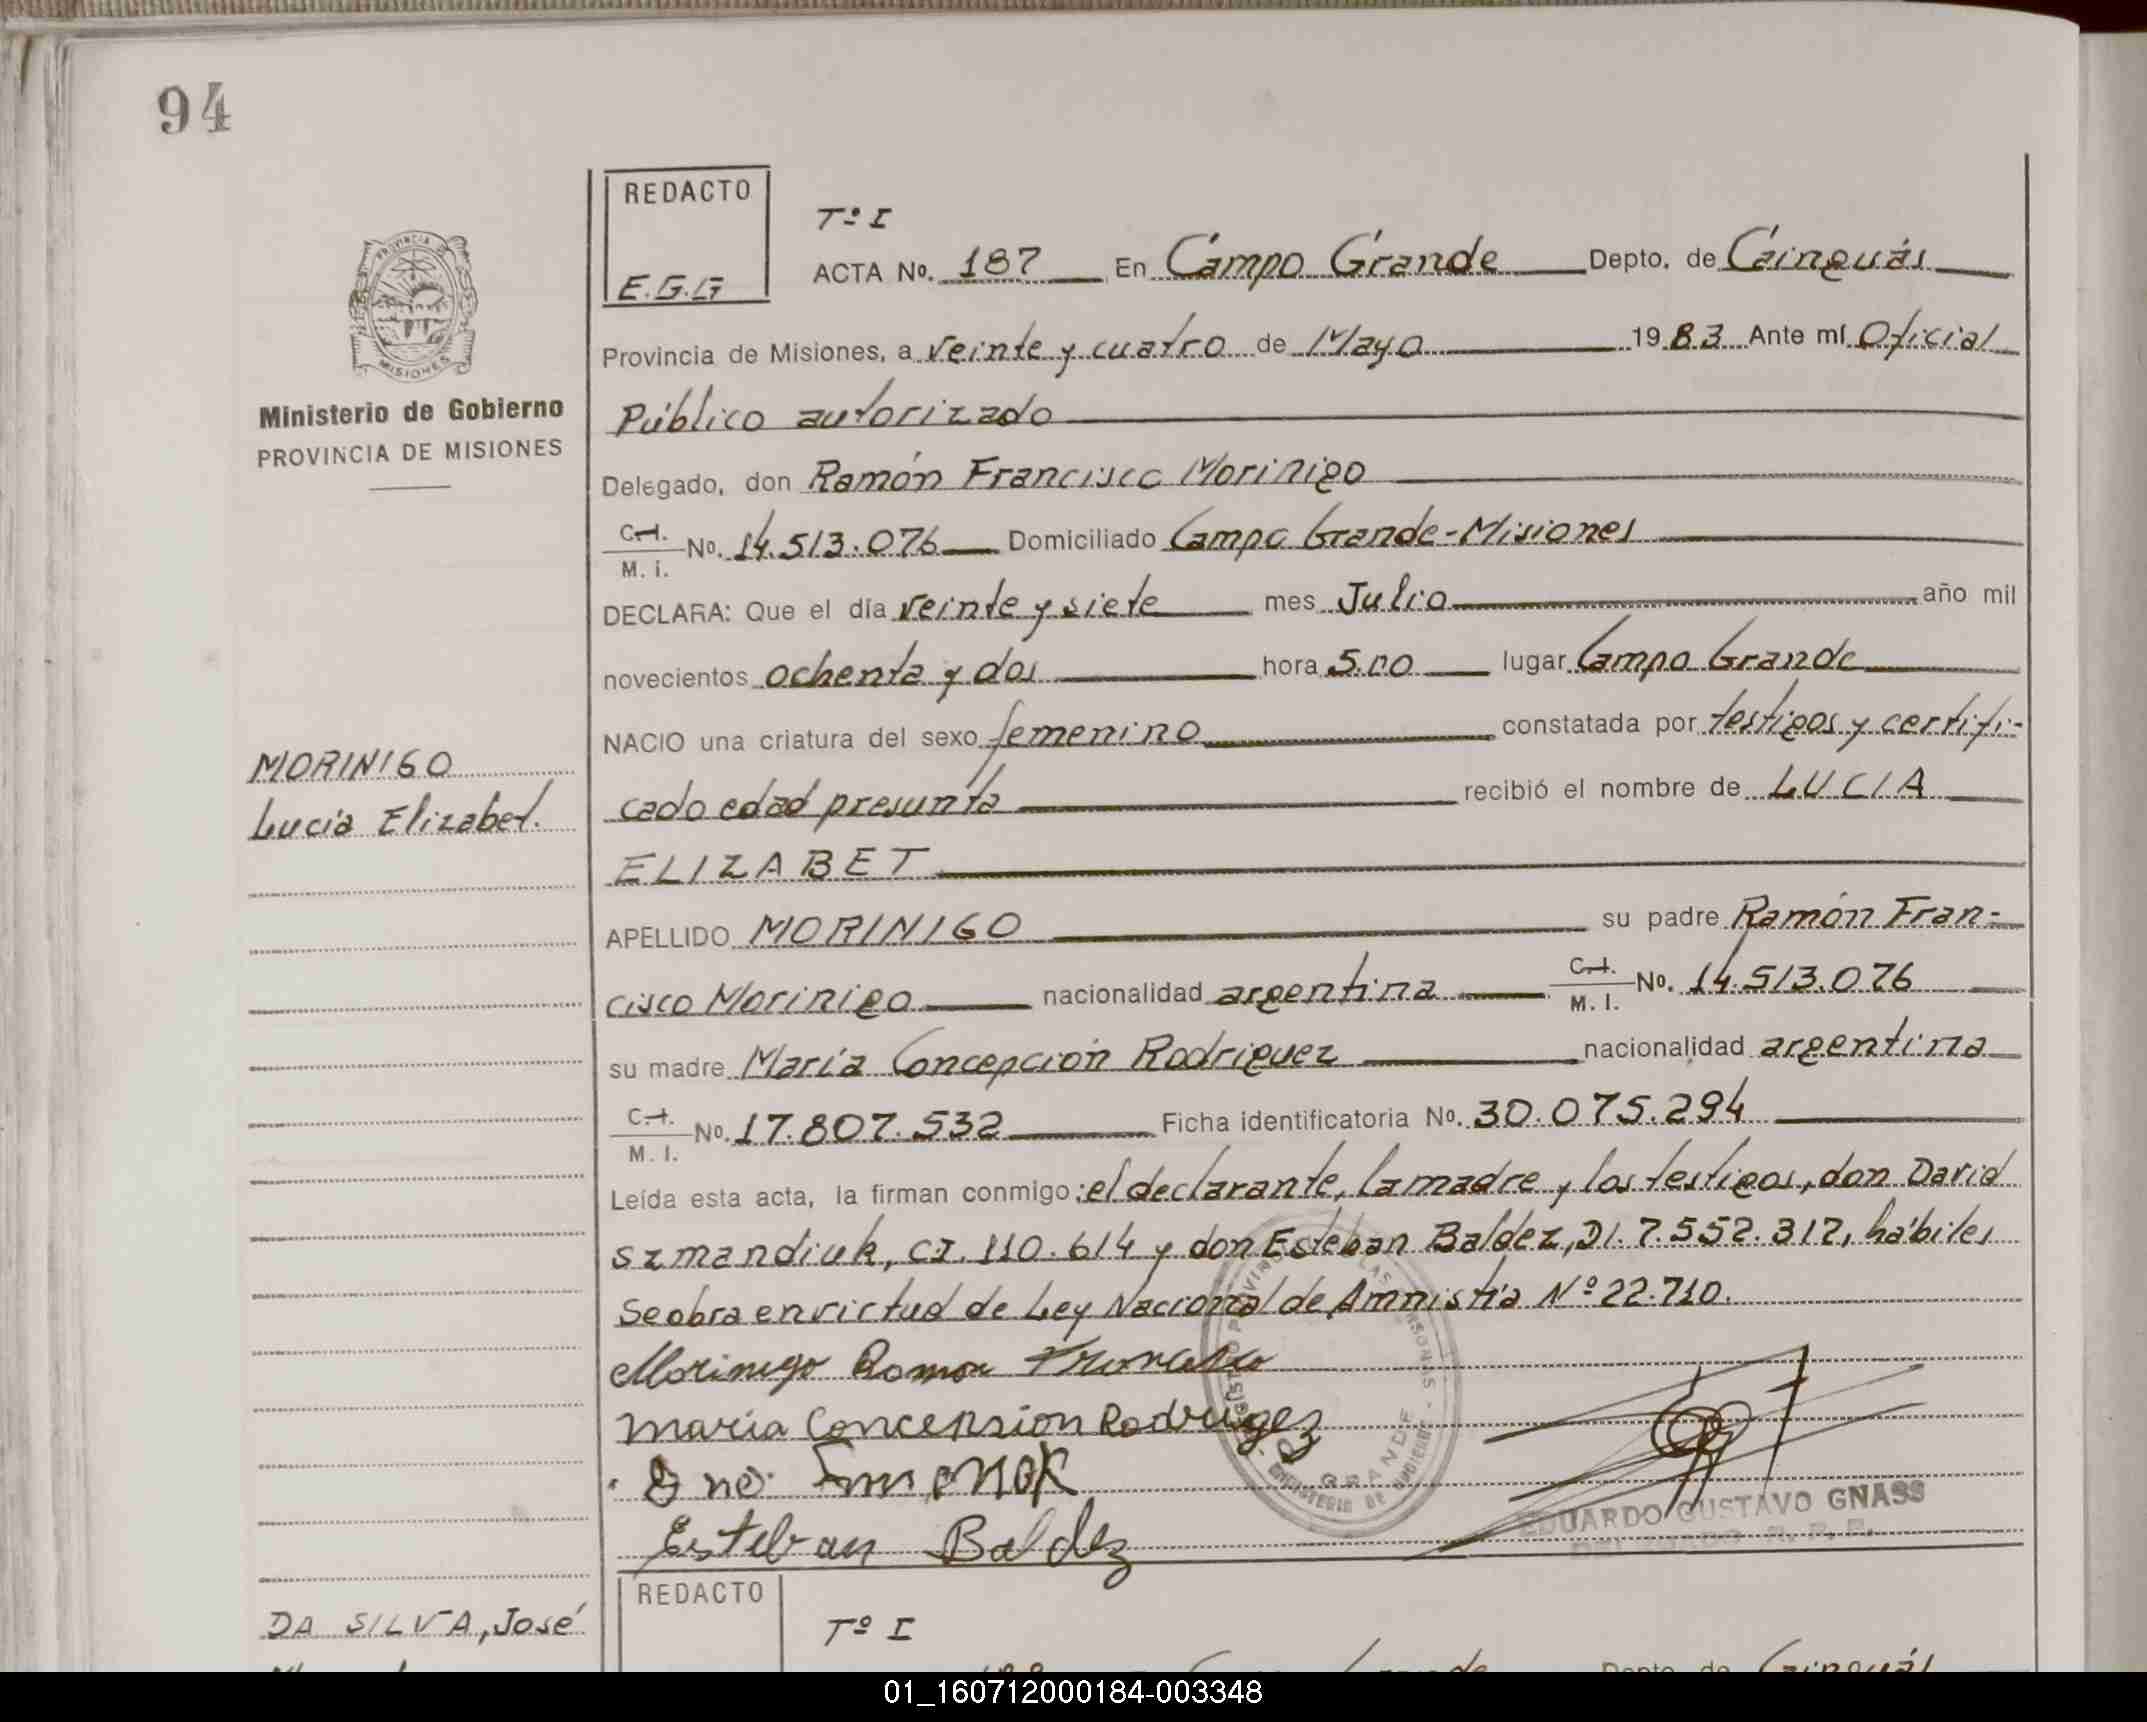 94
REDACTO
E.G.G
Tº I
ACTA No. 187 En Campo Grande Depto. de Cainguás
Provincia de Misiones, a veinte y cuatro de Mayo 1983 Ante mí Oficial
Público autorizado
Delegado, don Ramón Francisco Morinigo
C.I. M. i. No. 14.513.076 Domiciliado Campo Grande-Misiones
DECLARA: Que el día veinte y siete mes Julio año mil
novecientos ochenta y dos hora 5.00 lugar Campo Grande
NACIO una criatura del sexo femenino constatada por testigos y certifi-
cado edad presunta recibió el nombre de LUCIA
ELIZABET
APELLIDO MORINIGO su padre Ramón Fran-
cisco Morinigo nacionalidad argentina C.I. M. I. No. 14.513.076
su madre María Concepción Rodriguez nacionalidad argentina
C.I. M. I. No. 17.807.532 Ficha identificatoria No. 30.075.294
Leída esta acta, la firman conmigo: el declarante, la madre y los testigos, don David
Szmandiuk, CI. 110.614 y don Esteban Baldez, DI. 7.552.317, hábiles
Se obra en virtud de Ley Nacional de Amnistía Nº 22.710.
Morinigo Ramon Francisco
maria Concepsion Rodrugez
Esteban Baldez
EDUARDO GUSTAVO GNASS
GRANDE
MINISTERIO DE
Ministerio de Gobierno
PROVINCIA DE MISIONES
MORINIGO
Lucia Elizabet.
DA SILVA, José
REDACTO
Tº I
01_160712000184-003348